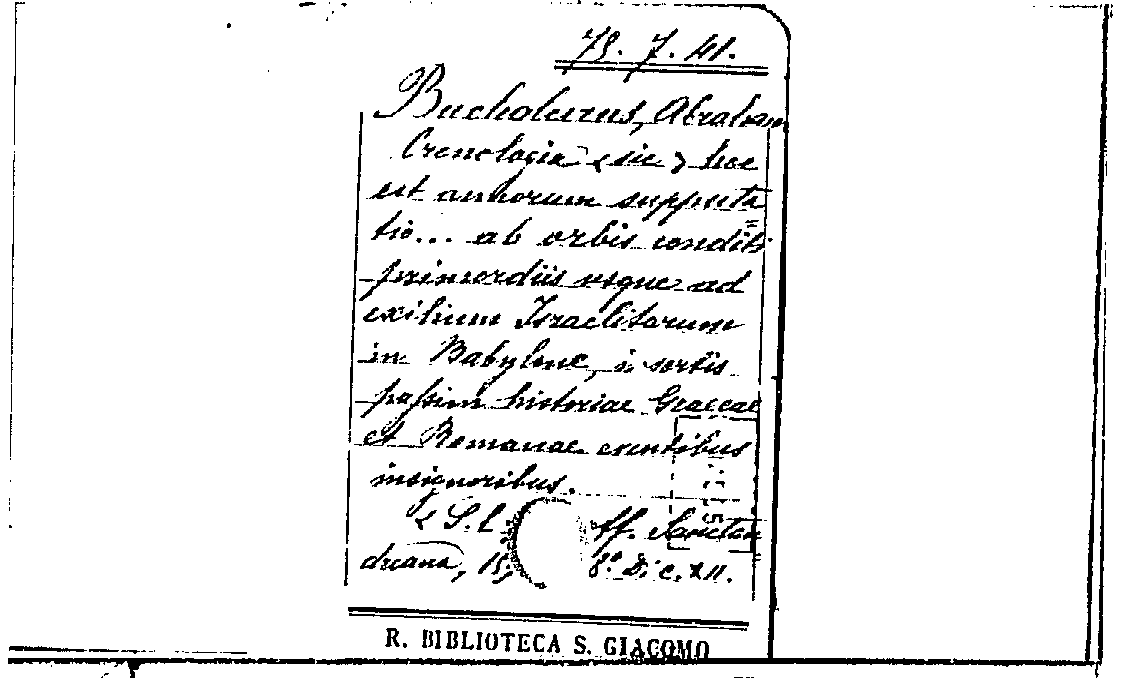 79. 7. 41.
Bucholcrus, Abraham
Cronologia <sic> hoc
est annorum supputa
tio... ab orbis conditi
primordiis usque ad
exilium Israelitarum
in Babylone, i sertis
passim historiae Graecae
et Romanae eventibus
insignoribus.
<S.l. ff. Sanctan
dreana, 15 8° Di c. XII.
R. BIBLIOTECA S. GIACOMO